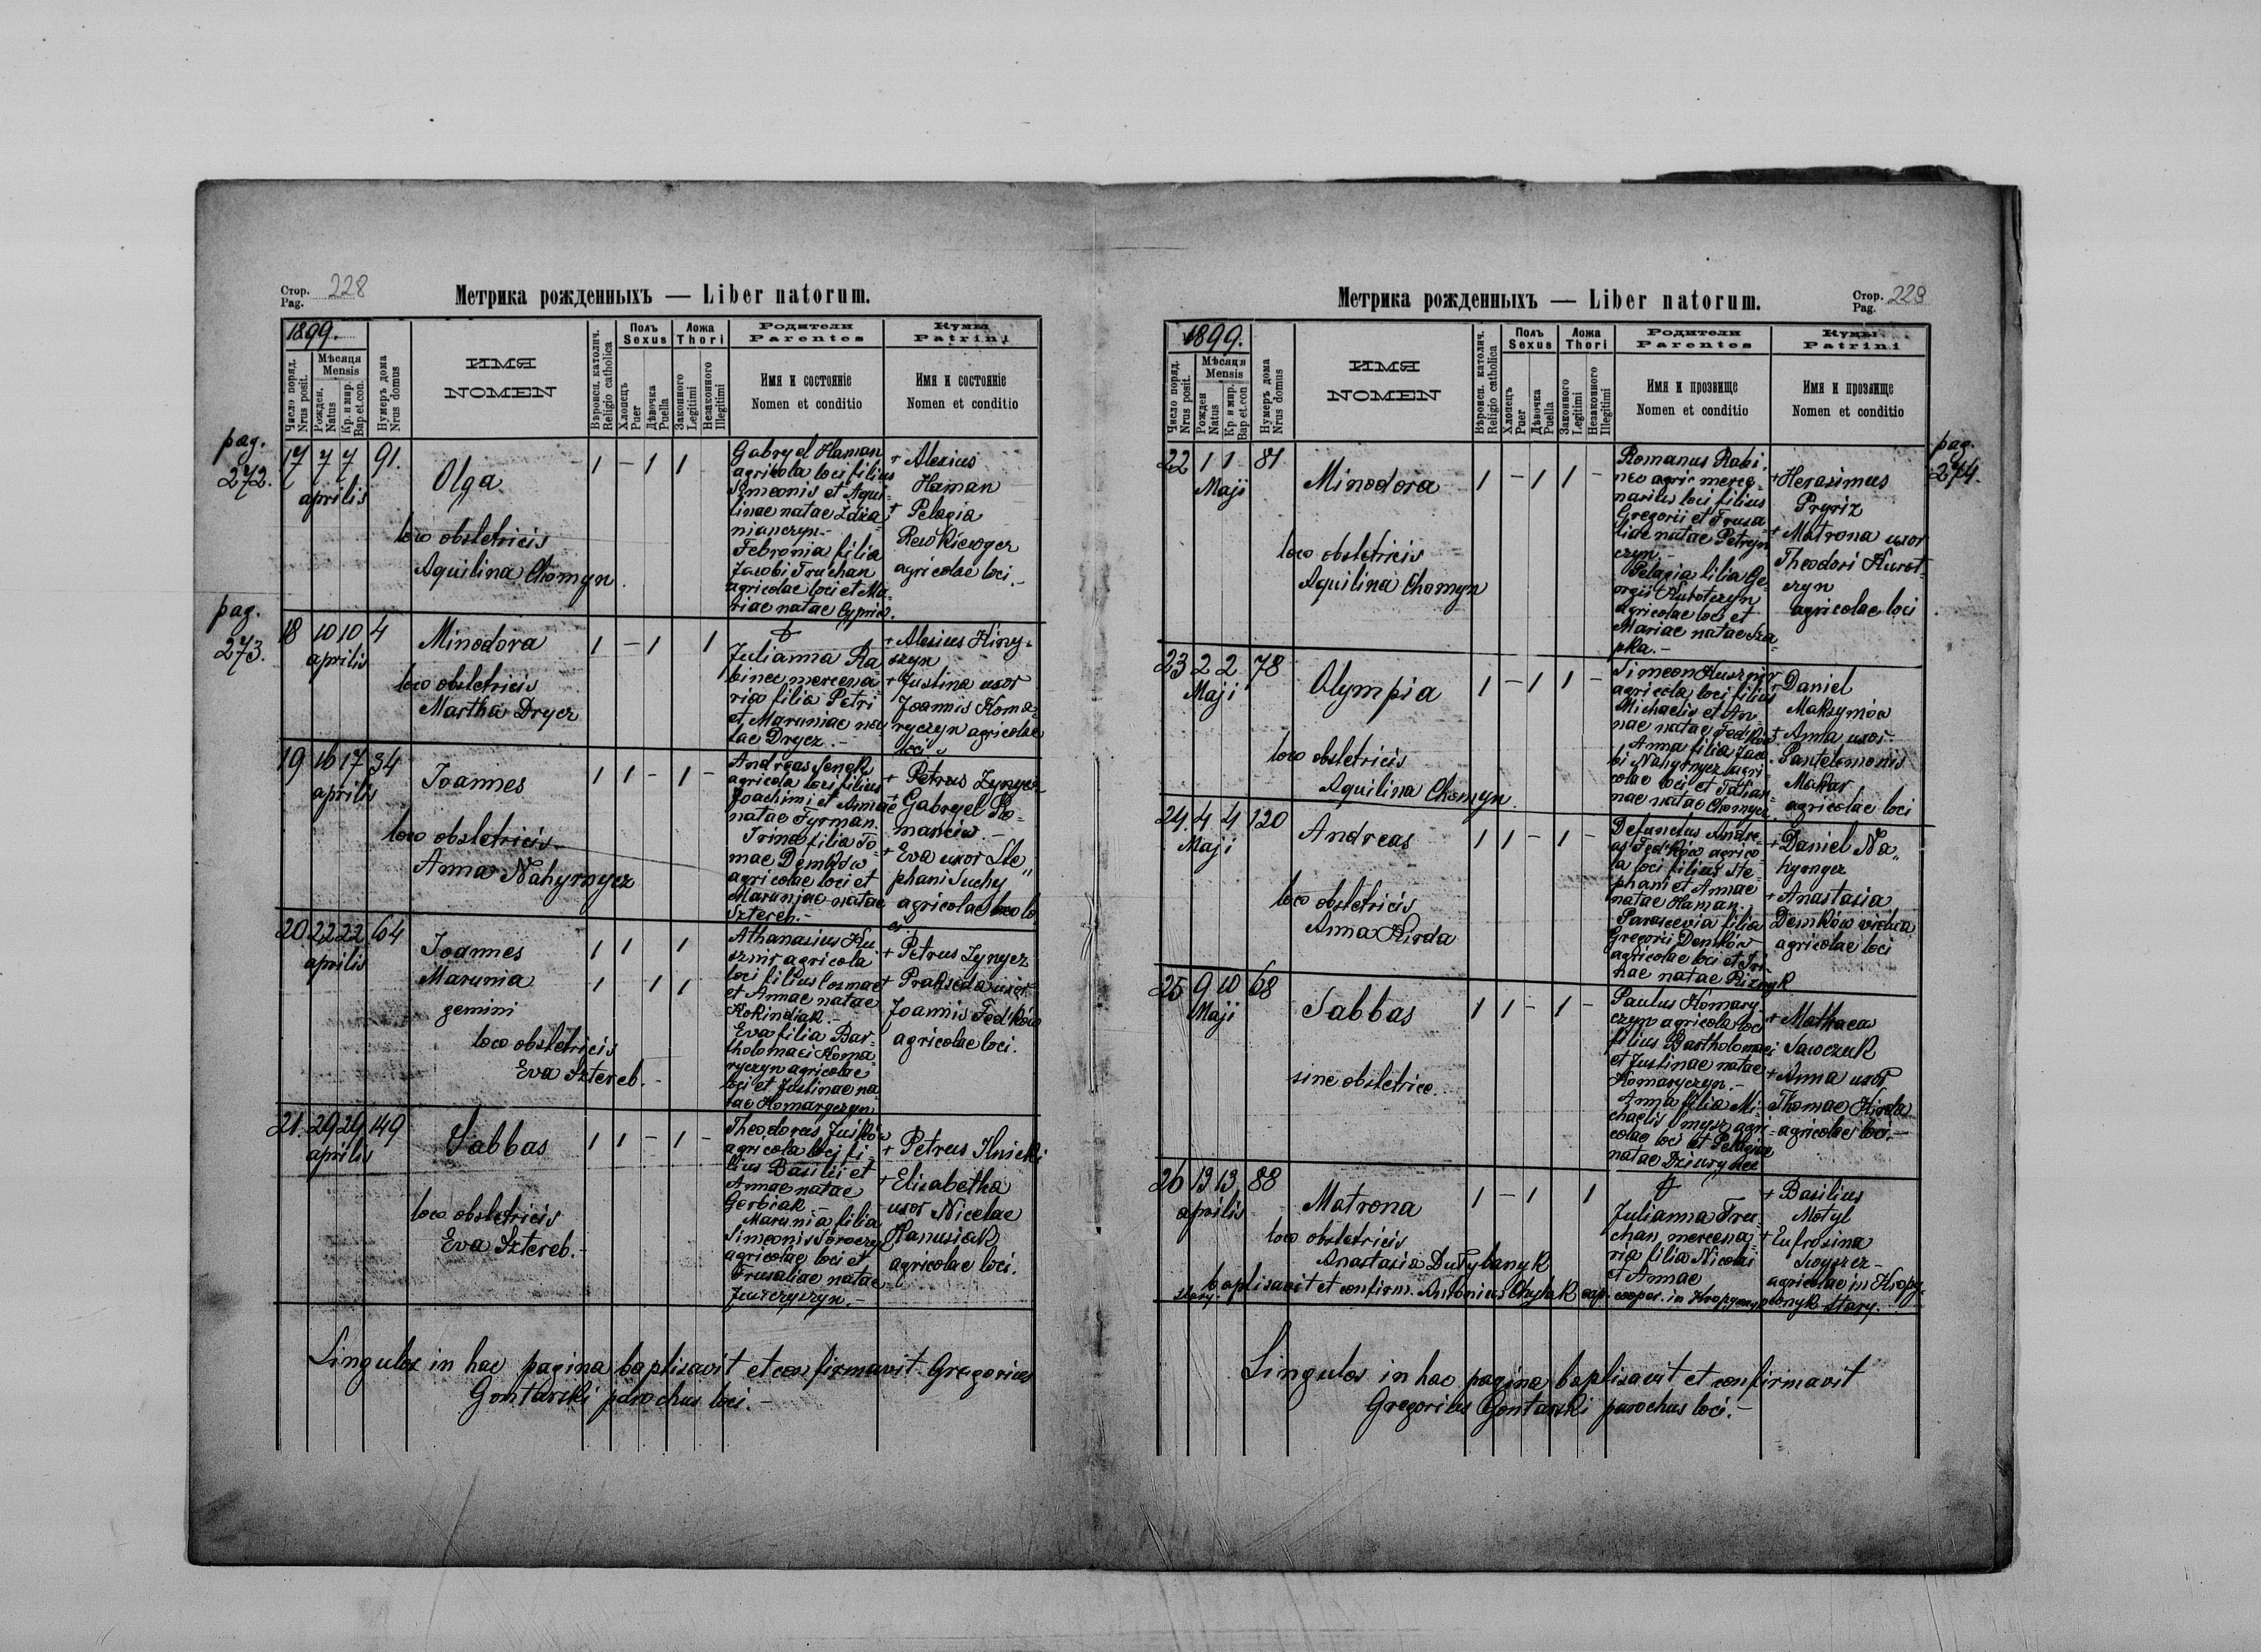 Стор. 228
Pag.
Метрика рожденныхъ — Liber natorum.
1899.
Число поряд.
Nrus posit.
Мѣсяця
Mensis
Рожден.
Natus
Кр. и мир.
Bap. et. con.
Нумеръ дома
Nrus domus
ИМЯ
NOMEN
Вѣроисп. католич.
Religio catholica
Полъ
Sexus
Хлопецъ
Puer
Дѣвочка
Puella
Ложа
Thori
Законного
Legitimi
Незаконного
Illegitimi
Родители
Parentes
Имя и состояніе
Nomen et conditio
Кумы
Patrini
Имя и состояніе
Nomen et conditio
pag.
272.
17 7 7 91.
aprilis
Olga
loco obstetricis
Aquilina Chomyn
1 - 1 1
Gabryel Haman
agricola loci filius
Simeonis et Aqui-
linae natae
Febronia filia
Jacobi Truchan
agricolae loci et Ma-
riae natae
+ Alexius
Haman
+ Pelagia
agricolae loci.-
pag.
273.
18 10 10 4
aprilis
Minodora
loco obstetricis
Martha Drycz
1 - 1 1
Julianna Ra
binec mercena-
ria filia Petri
et Maruniae na
tae Drycz.-
+ Alexius Hiry-
szyn
+ Justina uxor
Joannis Koma-
ryczyn agricolae
loci
19 16 17 34
aprilis
Joannes
loco obstetricis
Anna Nahyrnycz
1 1 - 1 -
Andreas Senek
agricola loci filius
Joachimi et Annae
natae Fyrman.
Irina filia To-
mae Demków
agricolae loci et
Maruniae natae
Sztereb.-
+ Petrus Zynycz
+ Gabryel Ro-
manciw.-
+ Eva uxor Ste„
phani Suchy
agricolae loco lo
ci
20 22 22 64
aprilis
Joannes
Marunia
gemini
loco obstetricis
Eva Sztereb.-
1 1 1
1 1 1
Athanasius Ku
sznir agricola
loci filius Cosmae
et Annae natae
Kokindiak.-
Eva filia Bar-
tholomaei Koma
ryczyn agricolae
loci et Justinae na-
tae Komaryczyn
+ Petrus Zynycz
+ Prakseda uxor
Joannis Fedków
agricolae loci.
21. 29 29 149
aprilis
Sabbas
loco obstetricis
Eva Sztereb.-
1 1 - 1 -
Theodorus Juśków
agricola loci fi-
lius Basilii et
Annae natae
Gerbiak -
Marunia filia
Simeonis
agricolae loci et
Frusaliae natae
+ Petrus Ilnicki
+ Elisabetha
uxor Nicolae
Hanusiak
agricolae loci.
Singulos in hac pagina baptisavit et confirmavit Gregorius
Gontarski parochus loci.-
Метрика рожденныхъ — Liber natorum.
Стор. 229
Pag.
1899.
Число поряд.
Nrus posit.
Мѣсяця
Mensis
Рожден
Natus
Кр. и мир.
Bap et. con
Нумеръ дома
Nrus domus
ИМЯ
NOMEN
Вѣроисп. католич.
Religio catholica
Полъ
Sexus
Хлопецъ
Puer
Дѣвочка
Puella
Ложа
Thori
Законного
Legitimi
Незаконного
Illegitimi
Родители
Parentes
Имя и прозвище
Nomen et conditio
Кумы
Patrini
Имя и прозвище
Nomen et conditio
pag.
274.
22 1 1 81
Maji
Minodora
loco obstetricis
Aquilina Chomyn
1 - 1 1 -
Romanus Rabi-
nec agric merce-
narius loci filius
Gregorii et Frusa-
liae natae Petryn
czyn.-
Pelagia filia Ge-
orgii Kurotczyn
agricolae loci et
Mariae natae Sza
pka.-
+ Herasimus
Pryriz
+ Matrona uxor
Theodori Kurot-
czyn
agricolae loci
23 2 2 78
Maji
Olympia
loco obstetricis
Aquilina Chomyn
1 - 1 1 -
Simeon Kusznir
agricola loci filius
Michaelis et An-
nae natae Fedków
Anna filia Jaco-
bi Nahyrnycz agri-
colae loci et Tatian-
nae natae Chomycz
+ Daniel
Maksymów
+ Anna uxor
Panteleimonis
Makar
agricolae loci
24. 4 4 120
Maji
Andreas
loco obstetricis
Anna Kirda
1 1 - 1 -
Defunctus Andre-
as Fedków agrico-
la loci filius Ste-
phani et Annae
natae Haman.
Parascevia filia
Gregorii Demków
agricolae loci et Iri-
nae natae
+ Daniel Na„
hyrnycz
+ Anastasia
Demków vidua
agricolae loci
25 9 10 68
Maji
Sabbas
sine obstetrice.
1 1 - 1 -
Paulus Komary-
czyn agricola loci
filius Bartholomaei
et Justinae natae
Komaryczyn.-
Anna filia Mi-
chaelis Smysz agri-
colae loci et Pelagiae
natae Dziurynec
+ Mathaeus
Sawczuk
+ Anna uxor
Thomae Kirda
agricolae loci.-
26 13 13 88
aprilis
Matrona
loco obstetricis
Anastasia Dutybanyk
1 - 1 1
Julianna Tru
chan mercena-
ria filia Nicolai
et Annae
+ Basilius
Motyl
+ Eufrosina
agricolae in Kopy-
baptisavit et confirm. Antonius cooper. in
stary.
Singulos in hac pagina baptisavit et confirmavit
Gregorius Gontarski parochus loci.-